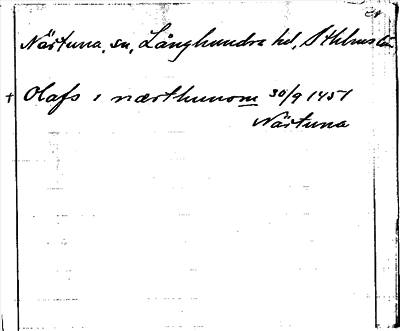 Närtuna, sn, Långhundra hd, Sthlms län
+ Olafs i nærthunom 30/9 1451
Närtuna